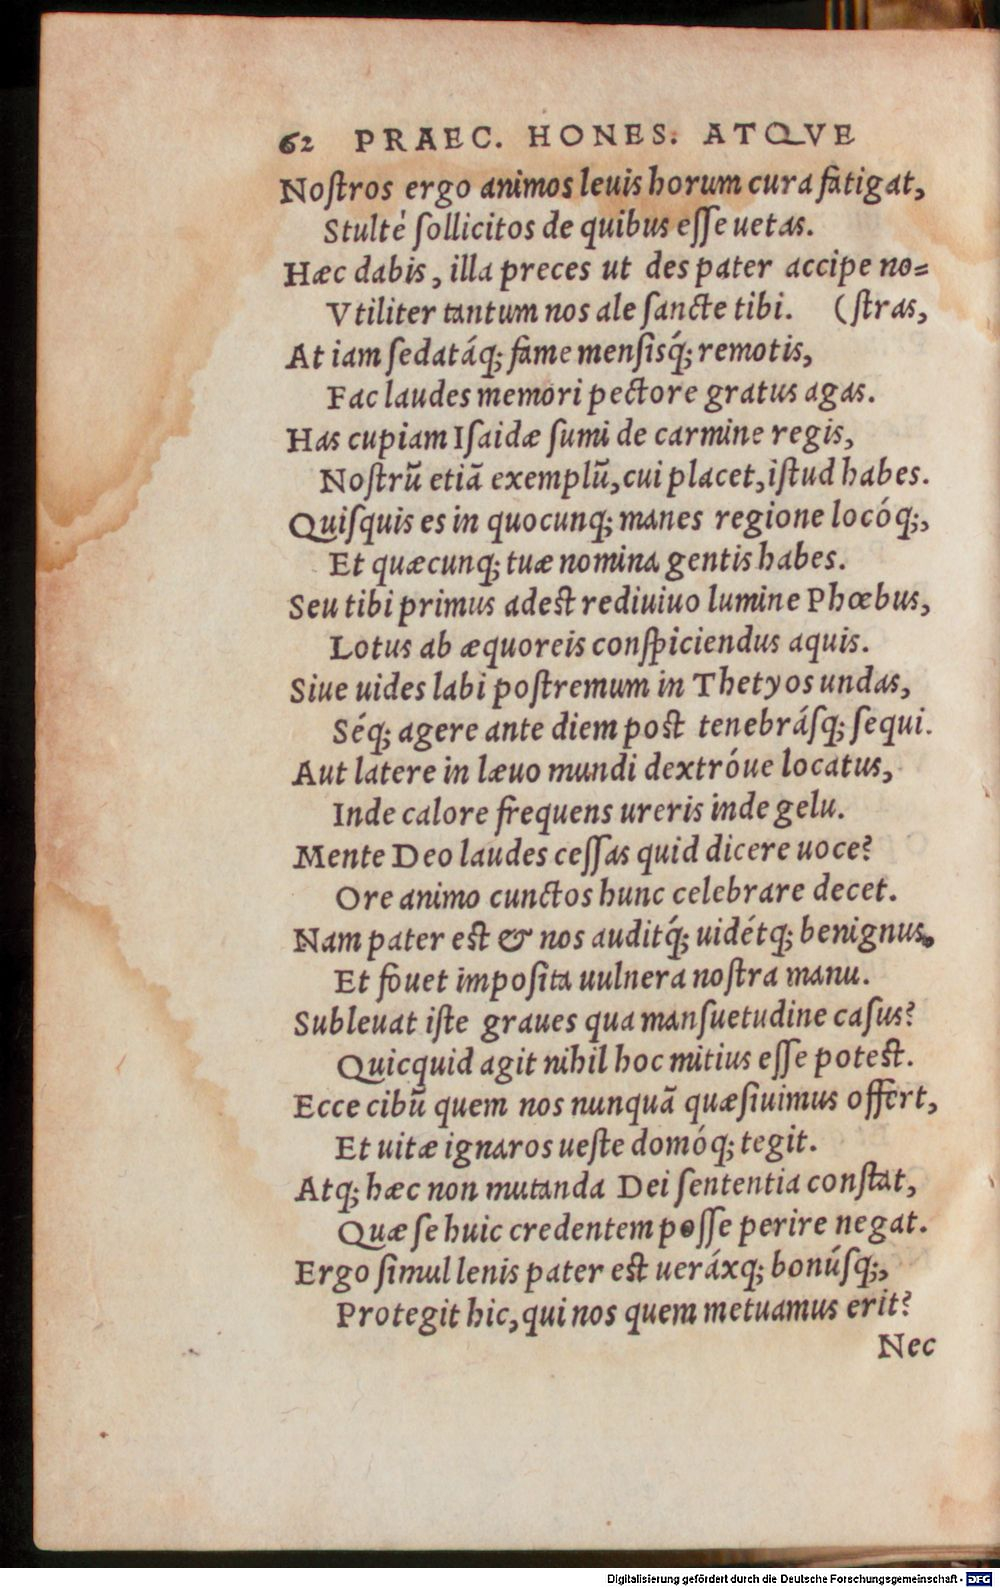 62 PRAEC. HONES. ATQVE
Noſtros ergo animos leuis horum cura fatigat,
Stulté ſollicitos de quibus eſſe uetas.
Hæc dabis, illa preces ut des pater accipe no=
Vtiliter tantum nos ale ſancte tibi. (ſtras,
At iam ſedatáq; fame menſisq́; remotis,
Fac laudes memori pectore gratus agas.
Has cupiam Iſaidæ ſumi de carmine regis,
Noſtrũ etiã exemplũ, cui placet, iſtud habes.
Quiſquis es in quocunq; manes regione locóq;,
Et quæcunq; tuæ nomina gentis habes.
Seu tibi primus adest rediuiuo lumine Phœbus,
Lotus ab æquoreis conſpiciendus aquis.
Siue uides labi poſtremum in Thetyos undas,
Séq; agere ante diem post tenebráſq; ſequi.
Aut latere in læuo mundi dextróue locatus,
Inde calore frequens ureris inde gelu.
Mente Deo laudes ceſſas quid dicere uoce?
Ore animo cunctos hunc celebrare decet.
Nam pater est & nos auditq́; uidétq; benignus,
Et fouet impoſita uulnera noſtra manu.
Subleuat iſte graues qua manſuetudine caſus?
Quicquid agit nihil hoc mitius eſſe potest.
Ecce cibũ quem nos nunquã quæſiuimus offert,
Et uitæ ignaros ueſte domóq; tegit.
Atq; hæc non mutanda Dei ſententia conſtat,
Quæ ſe huic credentem poſſe perire negat.
Ergo ſimul lenis pater est ueráxq; bonúſq;,
Protegit hic, qui nos quem metuamus erit?
Nec
Digitalisierung gefördert durch die Deutsche Forschungsgemeinschaft - DFG